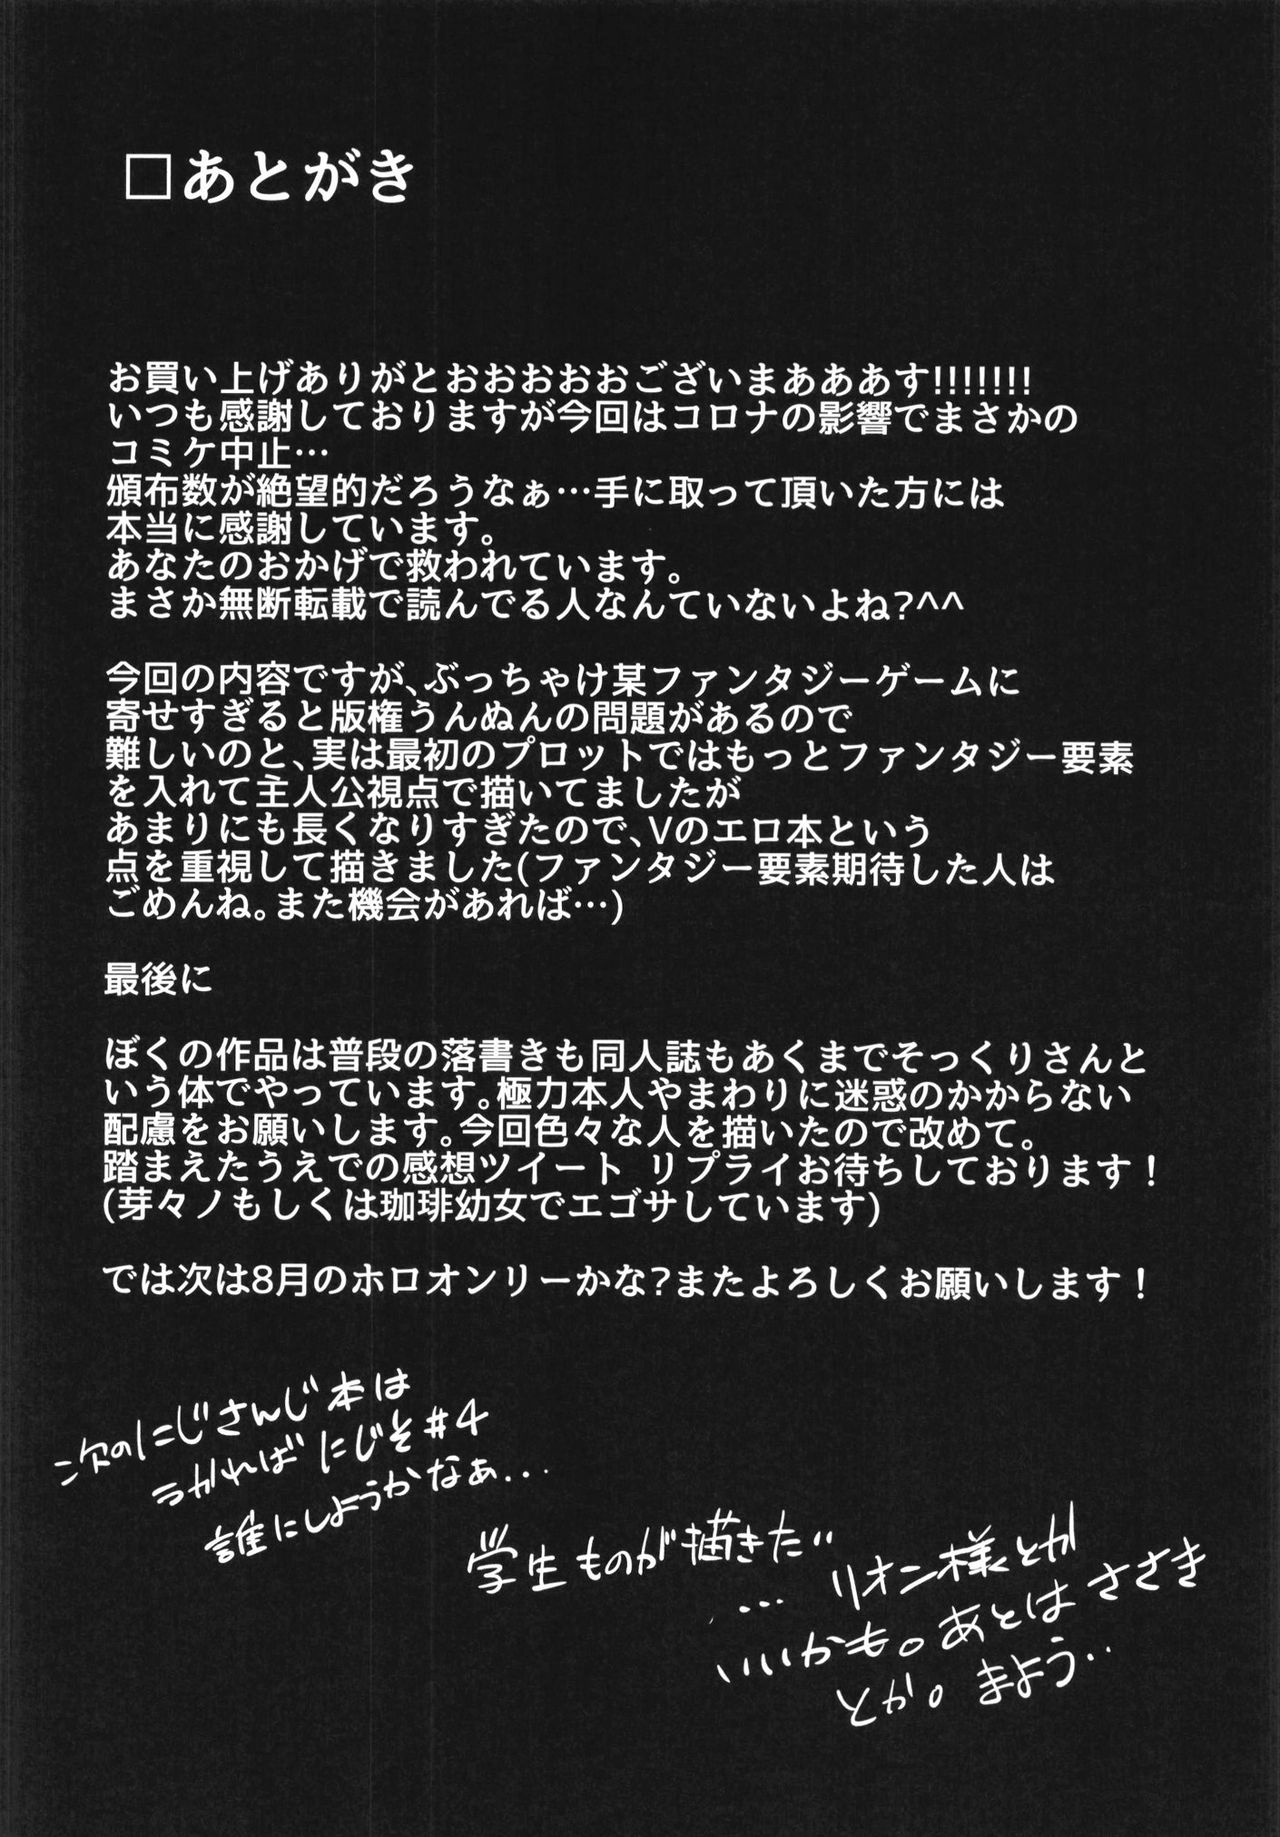 □あとがき
お買い上げありがとおおおおおございまあああす!!!!!!!
いつも感謝しておりますが今回はコロナの影響でまさかの
コミケ中止…
頒布数が絶望的だろうなぁ…手に取って頂いた方には
本当に感謝しています。
あなたのおかげで救われています。
まさか無断転載で読んでる人なんていないよね?^^
今回の内容ですが、ぶっちゃけ某ファンタジーゲームに
寄せすぎると版権うんぬんの問題があるので
難しいのと、実は最初のプロットではもっとファンタジー要素
を入れて主人公視点で描いてましたが
あまりにも長くなりすぎたので、Vのエロ本という
点を重視して描きました(ファンタジー要素期待した人は
ごめんね。また機会があれば…)
最後に
ぼくの作品は普段の落書きも同人誌もあくまでそっくりさんと
いう体でやっています。極力本人やまわりに迷惑のかからない
配慮をお願いします。今回色々な人を描いたので改めて。
踏まえたうえでの感想ツイート リプライお待ちしております！
(芽々ノもしくは珈琲幼女でエゴサしています)
では次は8月のホロオンリーかな?またよろしくお願いします！
次のにじさんじ本は
うかればにじそ#4
誰にしようかなぁ...
学生ものが描きたい
... リオン様とか
いいかも。あとはささき
とか。まよう..